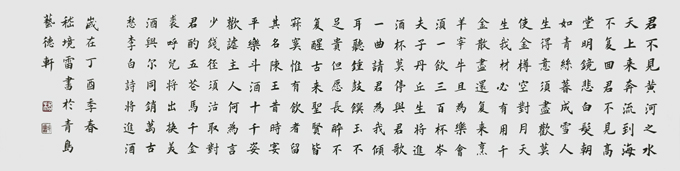 君不見黃河之水
天上來奔流到海
不復回君不見高
堂明鏡悲白髮朝
如青絲暮成雪人
生得意須盡歡莫
使金樽空對月天
生我材必有用千
金散盡還復來烹
羊宰牛且為樂會
須一飲三百杯岑
夫子丹丘生將進
酒杯莫停與君歌
一曲請君為我傾
耳聽鐘鼓饌玉不
足貴但愿長醉不
復醒古來聖賢皆
寂寞惟有飲者留
其名陳王昔時宴
平樂斗酒十千恣
歡謔主人何為言
少錢徑須沽取對
君酌五花馬千金
裘呼兒將出換美
酒與爾同銷萬古
愁李白詩將進酒
歲在丁酉季春
嵇境雷書於青島
藝德軒